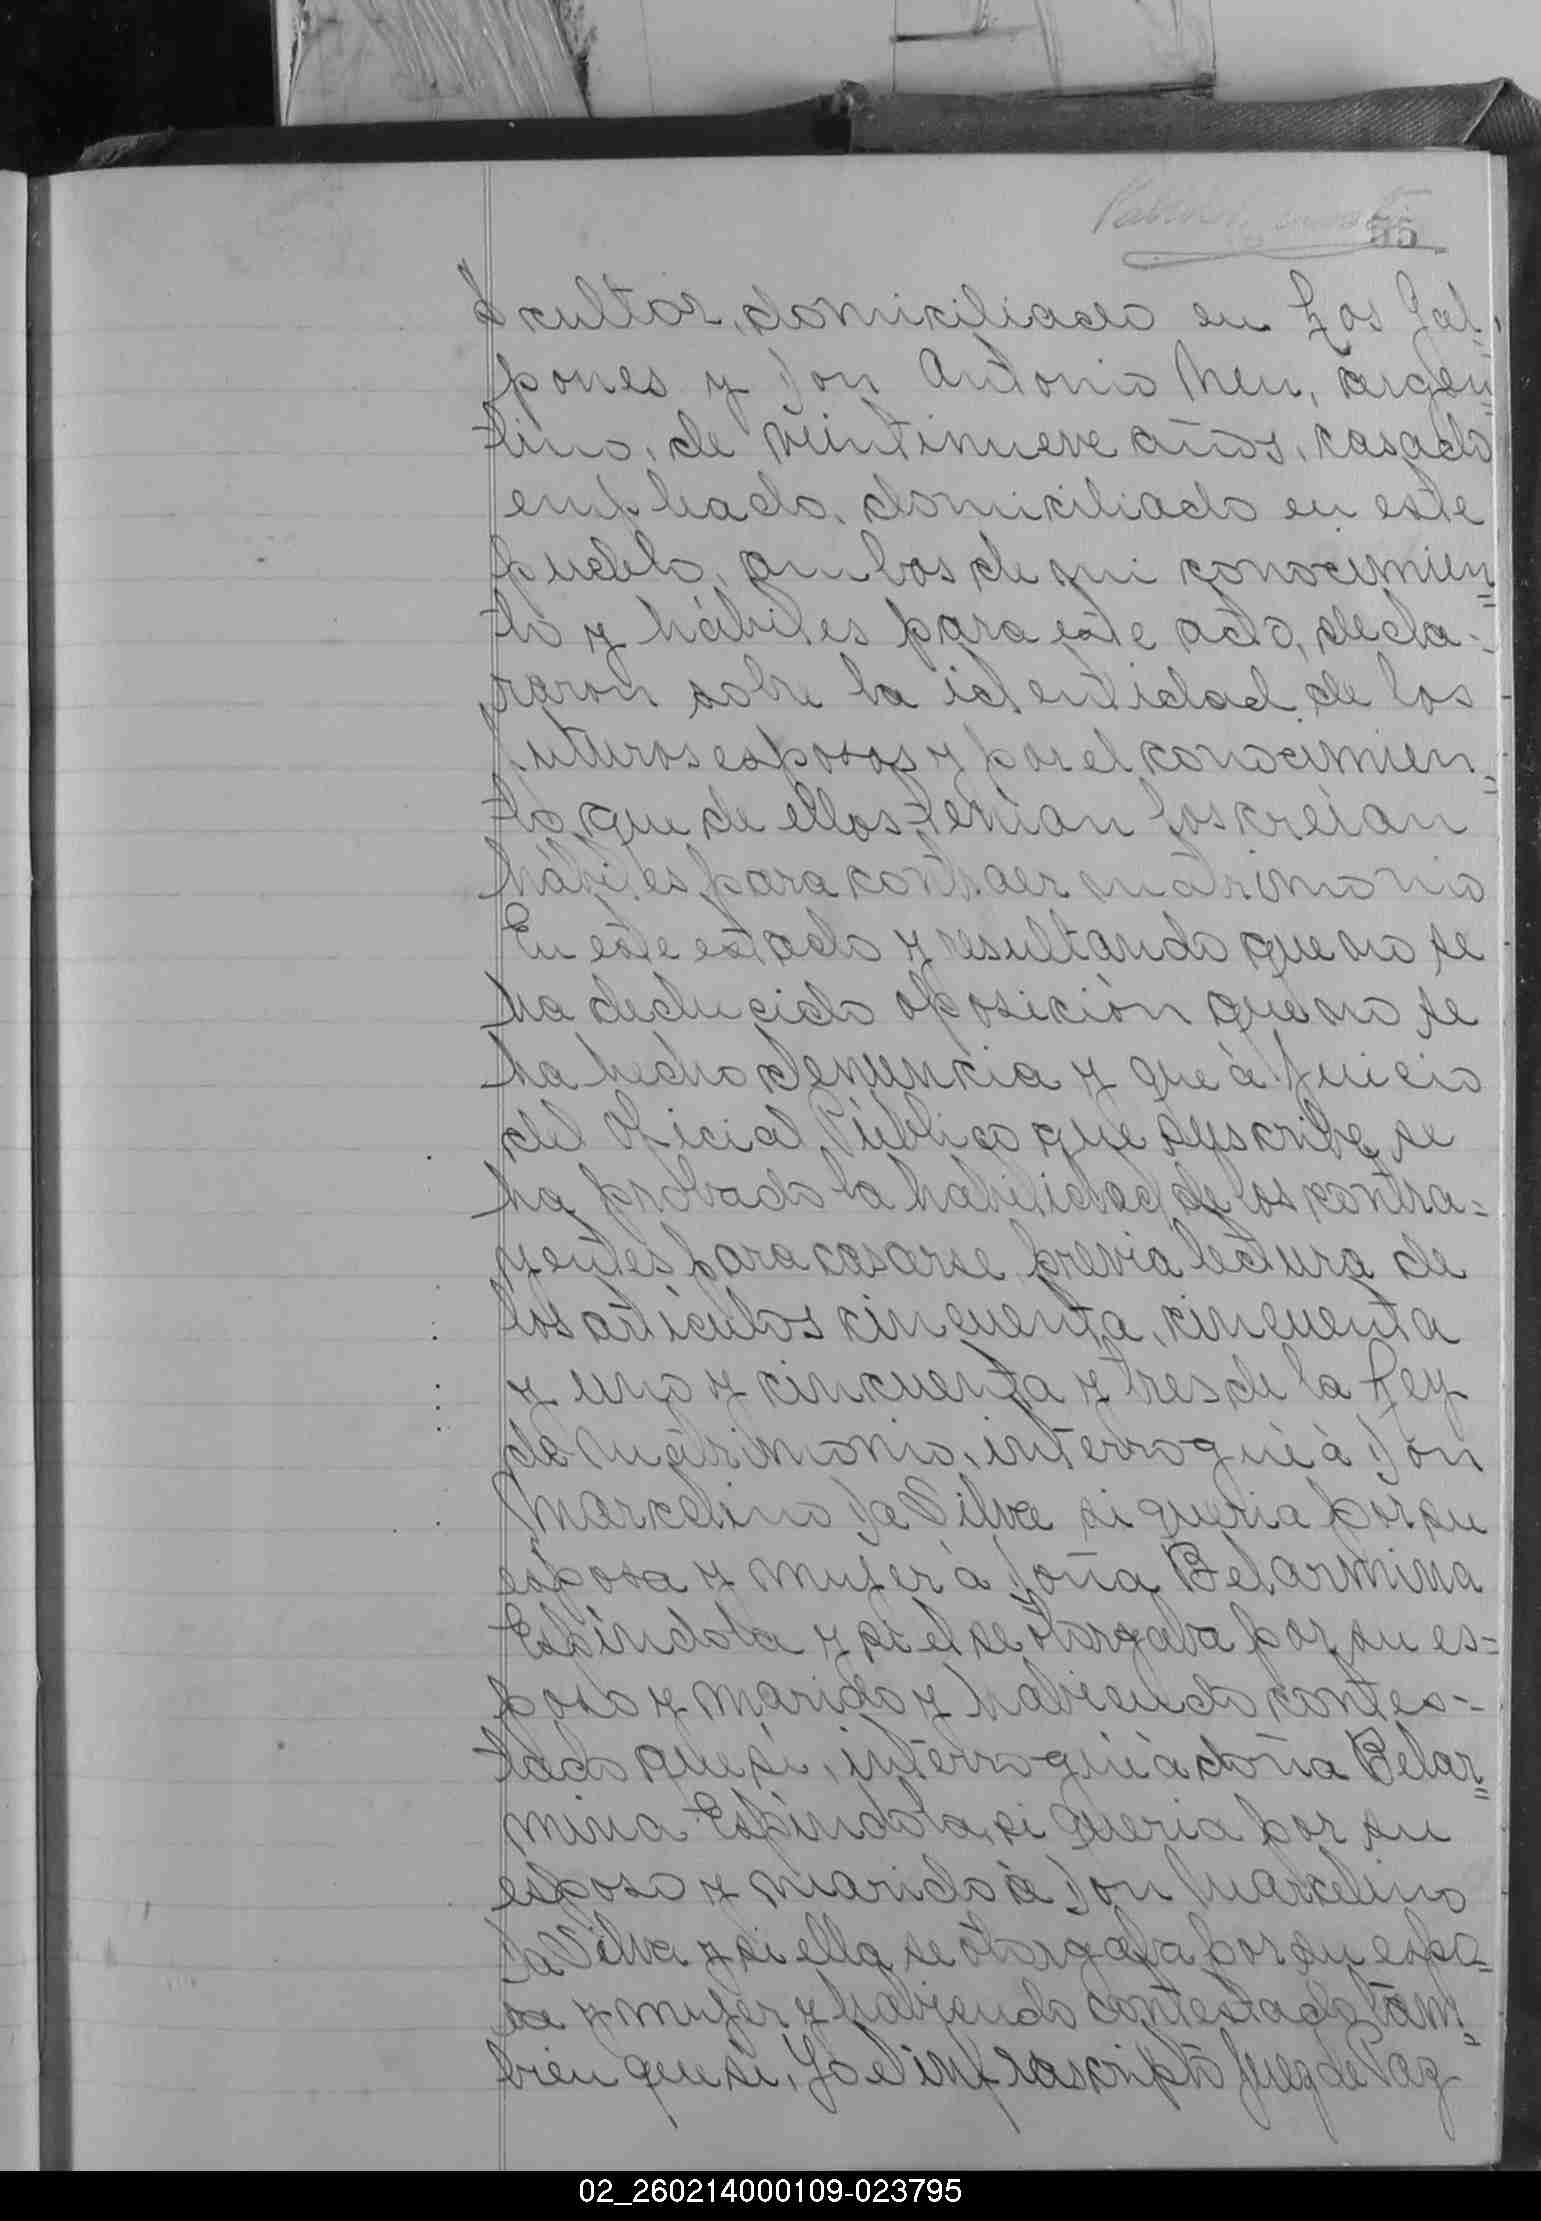 55
cultor, domiciliado en Los Gal=
pones y Don Antonio Neu, argen=
tino, de veintinueve años, casado
empleado, domiciliado en este
pueblo, ambos de mi conocimien=
to y hábiles para este acto, decla=
raron sobre la identidad de los
futuros esposos y por el conocimien=
to que de ellos tenian los creían
hábiles para contraer matrimonio
En este estado y resultando que no se
ha deducido oposición que no se
ha hecho denuncia y que á juicio
del Oficial Público que suscribe, se
ha probado la habilidad de los contra=
yentes para casarse previa lectura de
los artículos cincuenta, cincuenta
y uno y cincuenta y tres de la Ley
de Matrimonio, interrogué á Don
Marcelino Da Silva si queria por su
esposa y mujer á Doña Belarmina
Espíndola y si el se otorgaba por su es=
poso y marido y habiendo contes=
tado que si, interrogué á doña Belar=
mina Espíndola, si queria por su
esposo y marido á Don Marcelino
Da Silva y si ella se otorgaba por su espo=
sa y mujer y habiendo contestado tam=
bien que si, Yo el infrascripto Juez de Paz
02_260214000109-023795